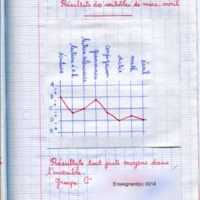 Résultats des contrôles de mars, avril
écriture
lecture silencieuse
grammaire
conjugaison
dictée
math
éveil
A
B
C
D
E
Résultats tout juste moyens dans
l'ensemble.
Groupe C⁻
Enseignant(e) 0014